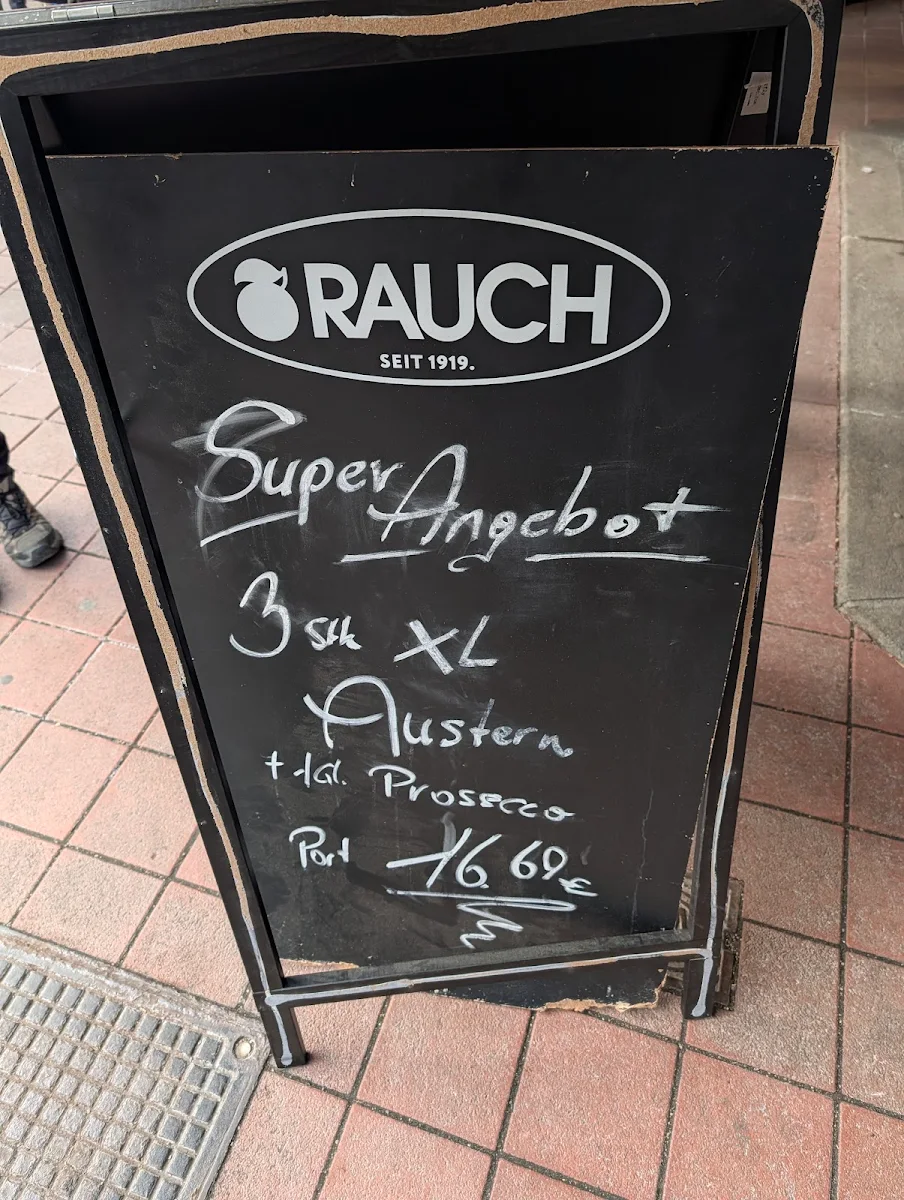 RAUCH
SEIT 1919.
Super Angebot
3 Stk XL
Austern
+ 1 Gl. Prosecco
Port 16.69€